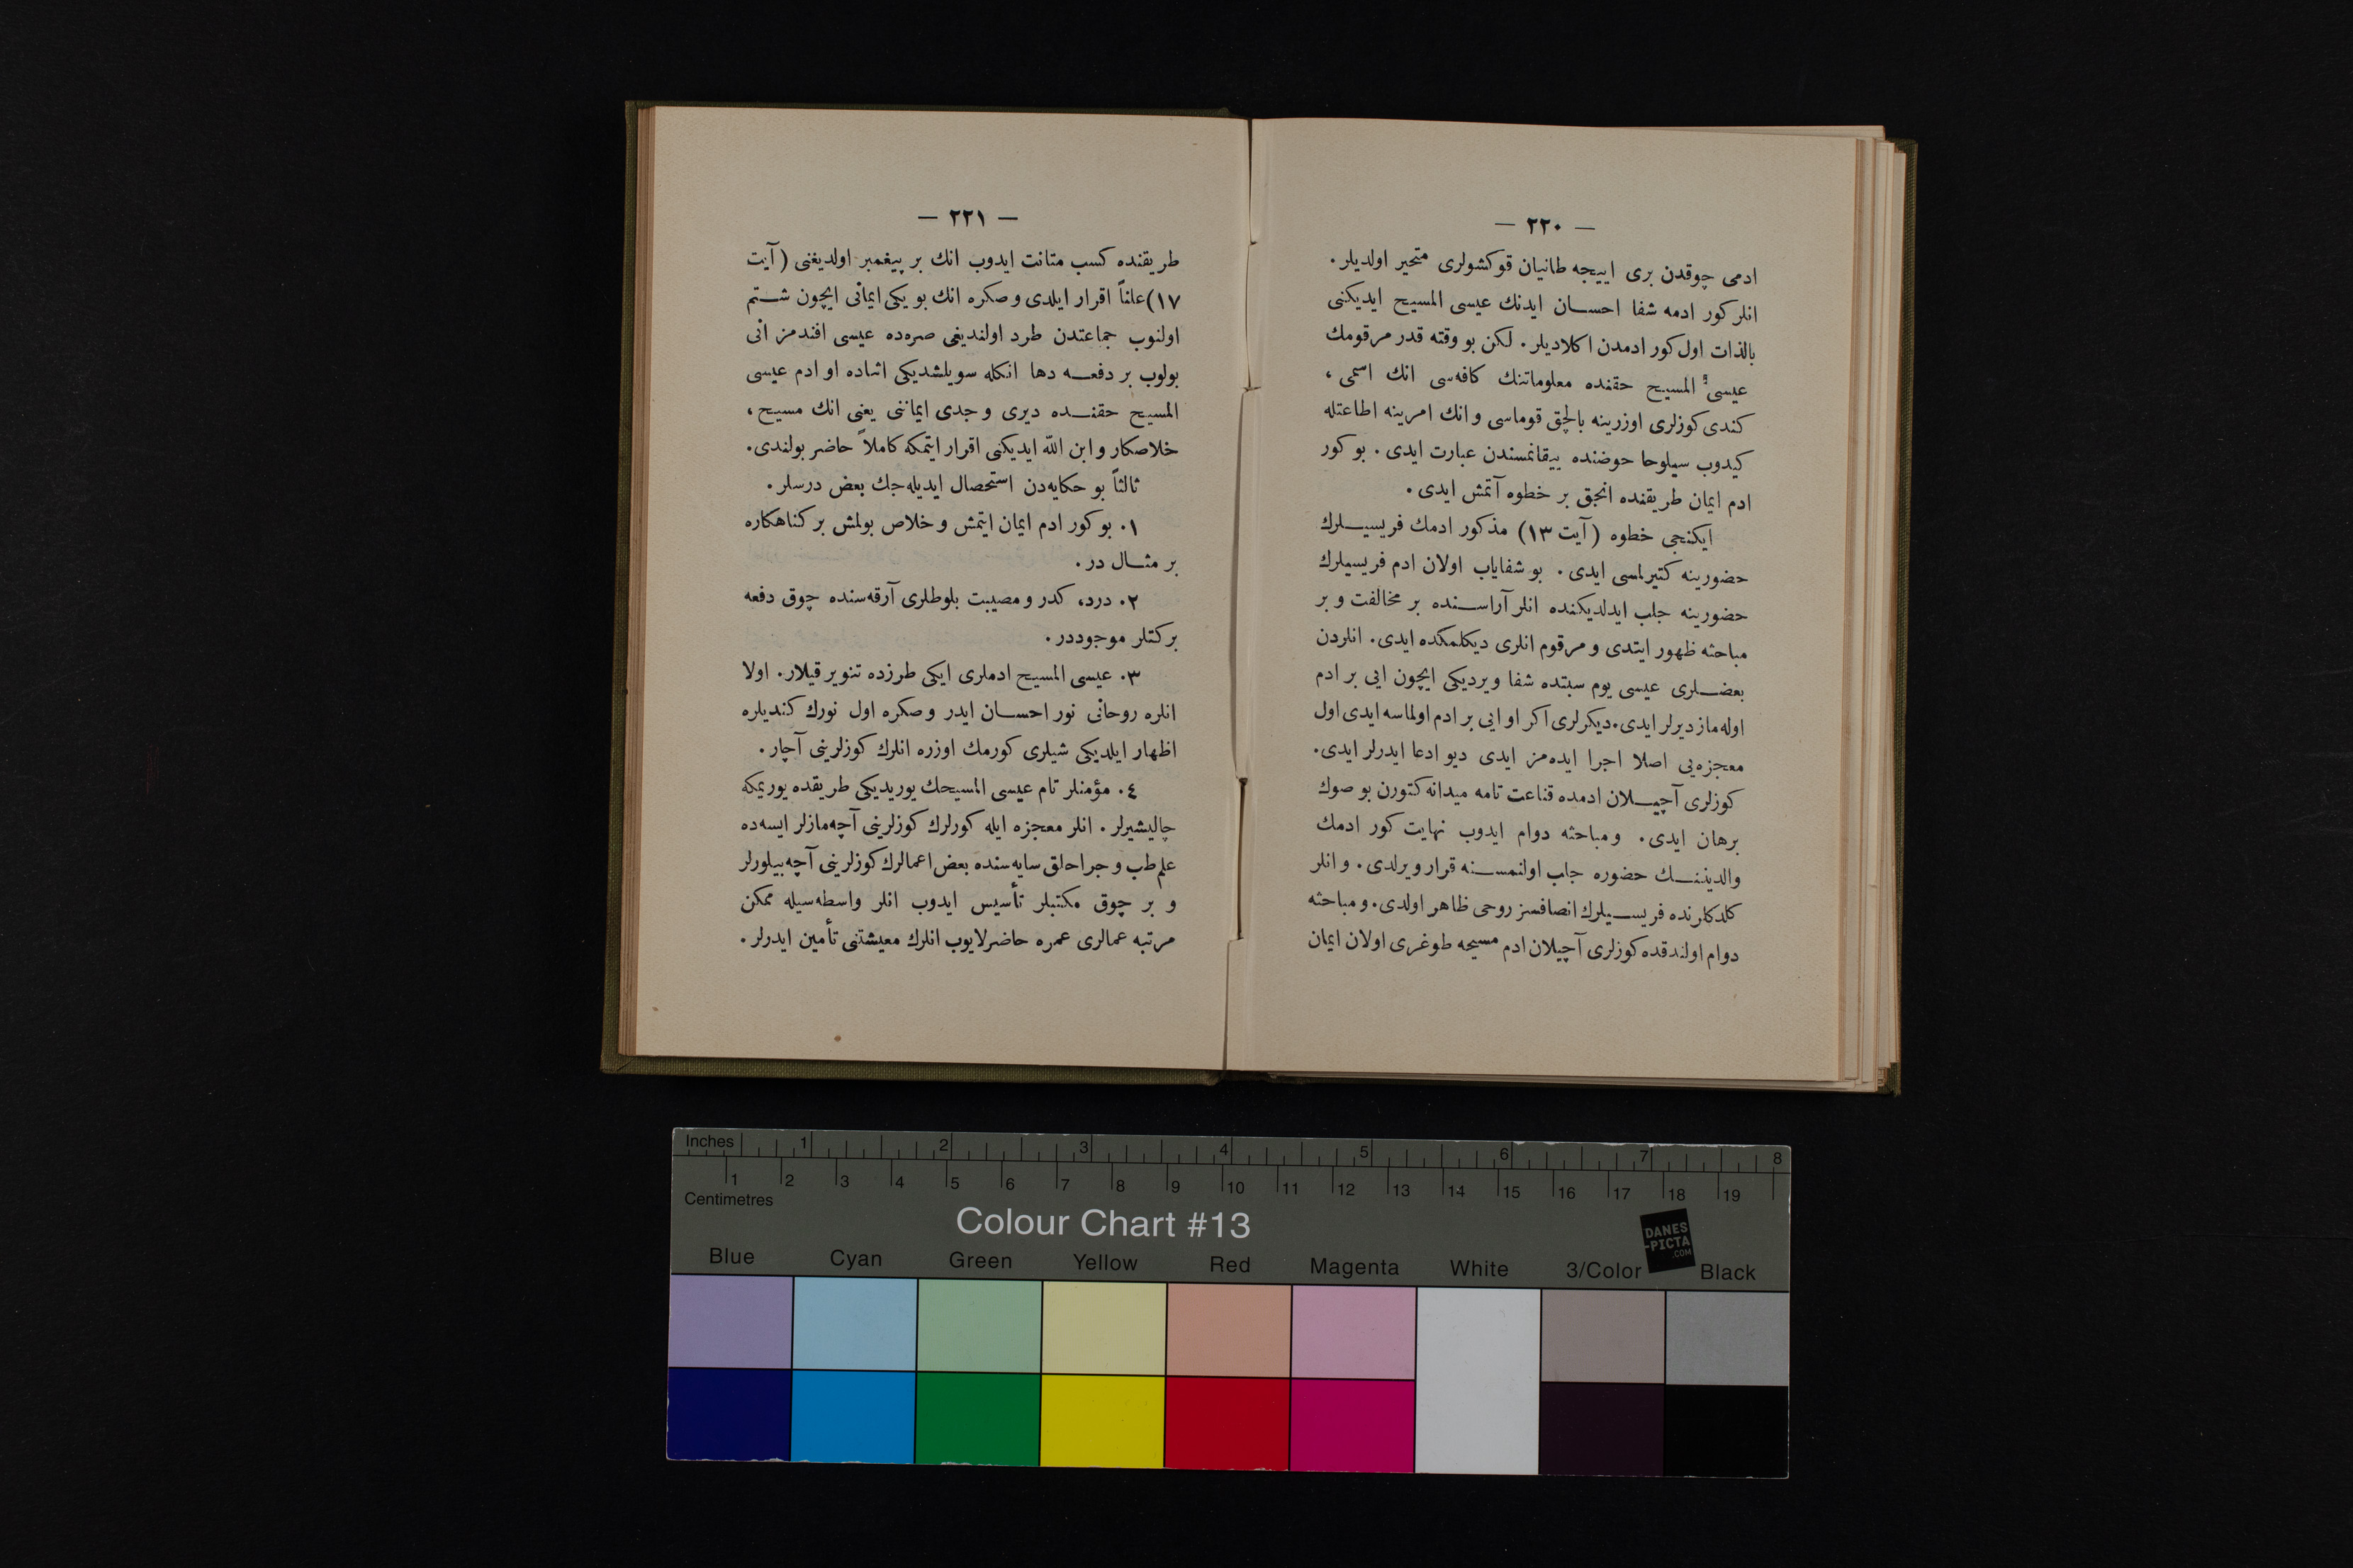 — ٢٢٠ —
ادمی چوقدن بری اییجه طانیان قوكشولری متحیر اولدیلر .
انلر كور ادمه شفا احسـان ایدنك عیسی المسیح ایدیكنی
بالذات اول كور ادمدن اكلادیلر . لكن بو وقته قدر مرقومك
عیسی المسیح حقنده معلوماتنك كافه‌سی انك اسمی ،
كندی كوزلری اوزرینه بالچق قوماسی و انك امرینه اطاعتله
كیدوب سیلوحا حوضنده ییقانمسندن عبارت ایدی . بو كور
ادم ایمان طریقنده انجق بر خطوه آتمش ایدی .
ایكنجی خطوه ( آیت ١٣ ) مذكور ادمك فریسیـلرك
حضورینه كتیرلمسی ایدی . بو شفایاب اولان ادم فریسیلرك
حضورینه جلب ایدلدیكنده انلر آراسـنده بر مخالفت و بر
مباحثه ظهور ایتدی و مرقوم انلری دیكلمكده ایدی . انلردن
بعضـلری عیسی یوم سبتده شفا ویردیكی ایچون ایی بر ادم
اوله‌ماز دیرلر ایدی . دیكرلری اكر او ایی بر ادم اولماسه ایدی اول
معجزه‌یی اصلا اجرا ایده‌مز ایدی دیو ادعا ایدرلر ایدی .
كوزلری آچیـلان ادمده قناعت تامه میدانه كتورن بو صوك
برهان ایدی . و مباحثه دوام ایدوب نهایت كور ادمك
والدیننـك حضوره جلب اولنمسـنه قرار ویرلدی . و انلر
كلدكلرنده فریسـیلرك انصافسز روحی ظاهر اولدی . و مباحثه
دوام اولندقده كوزلری آچیلان ادم مسیحه طوغری اولان ایمان
— ٢٢١ —
طریقنده كسب متانت ایدوب انك بر پیغمبر اولدیغنی ( آیت
١٧ ) علناً اقرار ایلدی و صكره انك بو یكی ایمانی ایچون شـتم
اولنوب جماعتدن طرد اولندیغی صره‌ده عیسی افندمز انی
بولوب بر دفعـه دها انكله سویلشدیكی اثناده او ادم عیسی
المسیح حقنـده دیری و جدی ایماننی یعنی انك مسیح ،
خلاصكار و ابن الله ایدیكنی اقرار ایتمكه كاملاً حاضر بولندی .
ثالثاً بو حكایه‌دن استحصال ایدیله‌جك بعض درسلر .
١٠ بو كور ادم ایمان ایتمش و خلاص بولمش بر كناهكاره
بر مثـال در .
٢٠ درد، كدر و مصیبت بلوطلری آرقه‌سنده چوق دفعه
بركتلر موجوددر .
٣٠ عیسی المسیح ادملری ایكی طرزده تنویر قیلار . اولا
انلره روحانی نور احسـان ایدر و صكره اول نورك كندیلره
اظهار ایلدیكی شیلری كورمك اوزره انلرك كوزلرینی آچار .
٤٠ مؤمنلر تام عیسی المسیحك یوریدیكی طریقده یوریمكه
چالیشیرلر . انلر معجزه ایله كورلرك كوزلرینی آچه‌مازلر ایسه‌ده
علم طب و جراحلق سایه‌سنده بعض اعمالرك كوزلرینی آچه بیلورلر
و بر چوق مكتبلر تأسیس ایدوب انلر واسطه‌سیله ممكن
مرتبه عمالری عمره حاضرلایوب انلرك معیشتنی تأمین ایدرلر .
Inches 1 2 3 4 5 6 7 8
1 2 3 4 5 6 7 8 9 10 11 12 13 14 15 16 17 18 19
Centimetres
Colour Chart #13
DANES
-PICTA
.COM
Blue Cyan Green Yellow Red Magenta White 3/Color Black